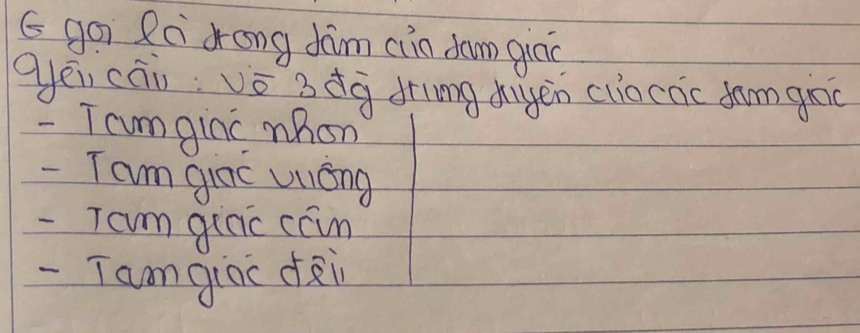 G gọi là trọng tâm của tam giác
Yêu cầu: vẽ 3 đg trung tuyến của các tam giác
- Tam giác nhọn
- Tam giác vuông
- Tam giác cân
- Tam giác đều